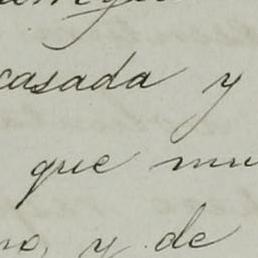 casada y
que mu
no, y de